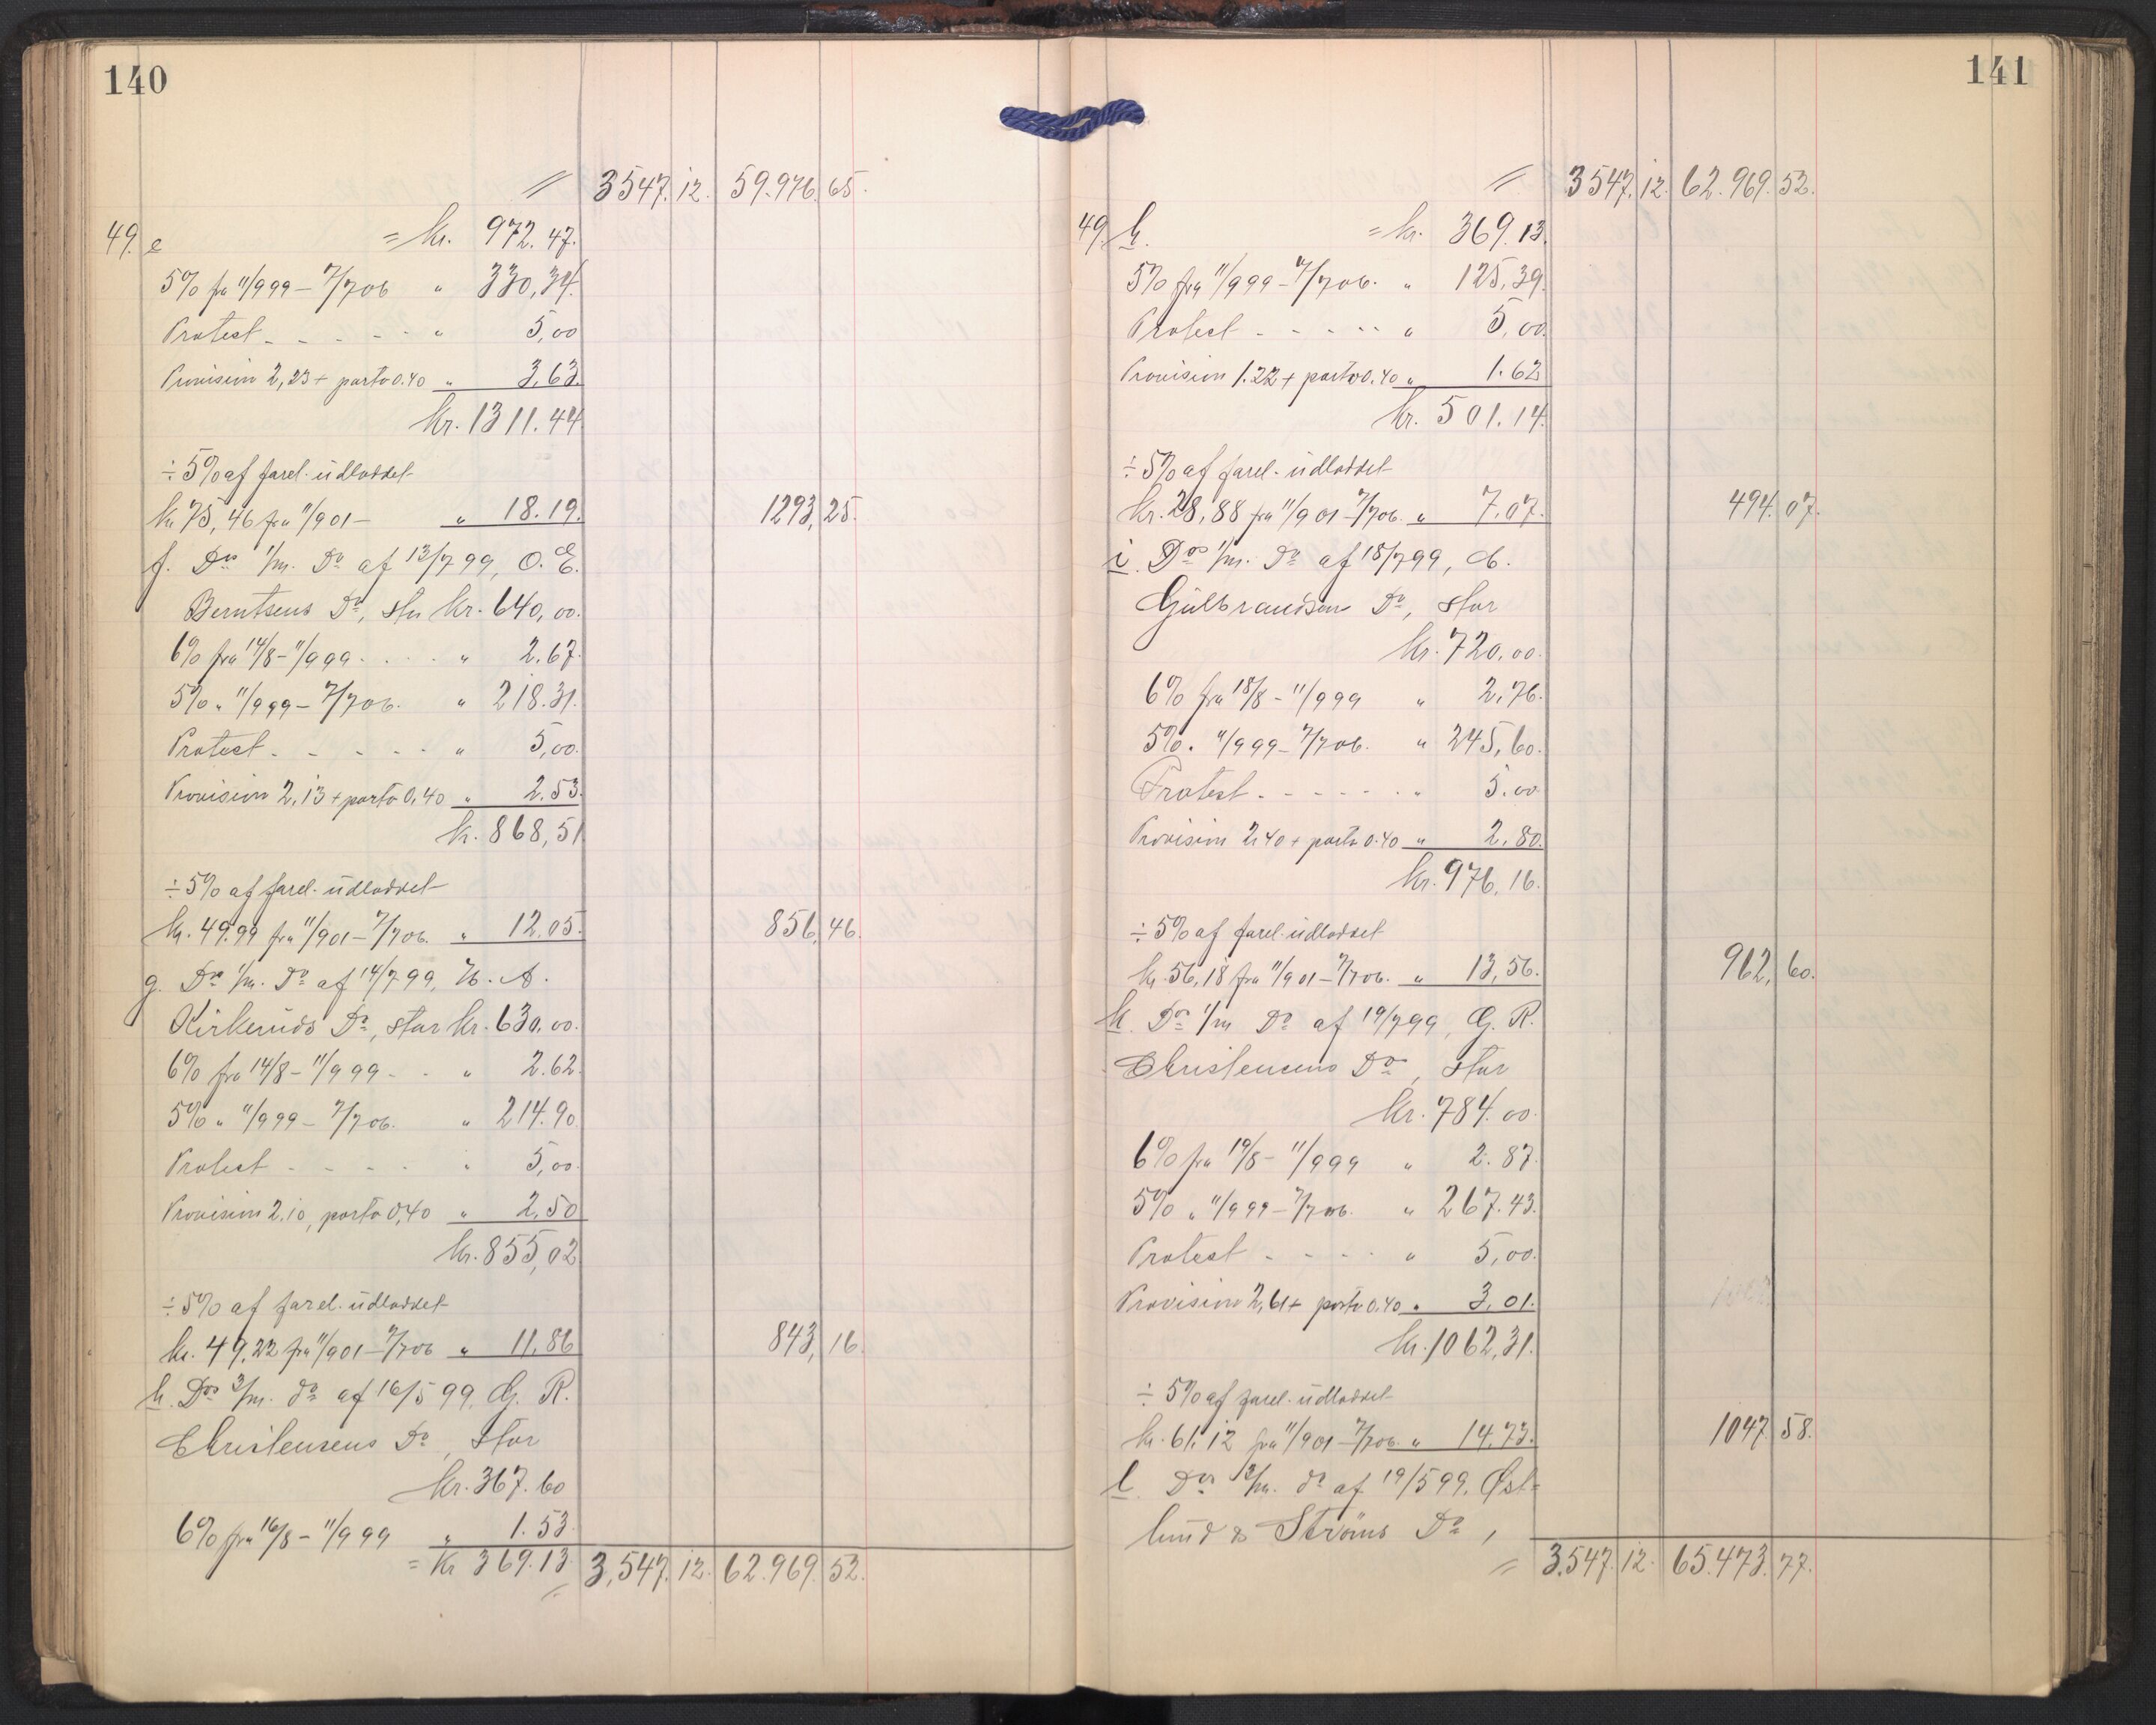 140
〃 3547. 12. 59.976. 65.
49. e = kr. 972. 47.
5% fra 11/9 99 – 7/7 06 " 330,34.
Protest - - - - - " 5,00
Provision 2,23 + porto 0.40 " 3,63.
kr. 1311.44
÷ 5% af forel. udloddet
kr 75,46 fra 11/9 01 – " 18.19. 1293, 25.
f. Dos 1/m. Do af 13/7 99, O. E.
Berntsens Do, stor kr. 640,00.
6% fra 14/8 – 11/9 99 - - - - " 2.67.
5% " 11/9 99 – 7/7 06. " 218.31.
Protest - - - - - " 5,00.
Provision 2,13 + porto 0,40 " 2.53.
kr. 868,51
÷ 5% af forel. udloddet
kr. 49.99 fra 11/9 01 – 7/7 06. " 12.05. 856, 46.
g. Dos 1/m. Do af 14/7 99, H. A.
Kirkeruds Do, stor kr. 630.00.
6% fra 14/8 – 11/9 99 - - " 2.62.
5% " 11/9 99 – 7/7 06. " 214.90.
Protest - - - - " 5,00.
Provision 2.10, porto 0,40 " 2,50
kr. 855,02
÷ 5% af forel. udloddet
kr. 49,22 fra 11/9 01 – 7/7 06 " 11,86 843, 16.
h. Dos 3/m. do af 16/5 99, G. R.
Christensens Do, stor
kr. 367.60
6% fra 16/8 – 11/9 99 " 1.53.
= Kr 369.13. 3,547. 12. 62.969. 52.
〃
141
〃 3547. 12. 62.969. 52.
49. h. = kr. 369.13.
5% fra 11/9 99 – 7/7 06. " 125,39.
Protest - - - - - " 5,00.
Provision 1.22 + porto 0,40 " 1.62
kr. 501.14.
÷ 5% af forel. udloddet
kr. 28,88 fra 11/9 01 – 7/7 06. " 7.07. 494. 07.
i. Dos 1/m. Do af 18/7 99,
Gulbrandsen Do, stor
kr. 720,00.
6% fra 18/8 – 11/9 99 " 2,76.
5% " 11/9 99 – 7/7 06. " 245,60.
Protest - - - - - - " 5.00
Provision 2,40 + porto 0.40 " 2,80.
kr. 976,16.
÷ 5% af forel. udloddet
kr. 56,18 fra 11/9 01 – 7/7 06. " 13,56. 962, 60.
k. Dos 1/m Do af 19/7 99, G. R.
Christensens Do, stor
kr. 784.00.
6% fra 19/8 – 11/9 99 " 2.87.
5% " 11/9 99 – 7/7 06. " 267.43.
Protest - - - - " 5,00.
Provision 2,61 + porto 0.40 " 3,01.
kr. 1062,31.
÷ 5% af forel. udloddet
kr. 61,12 fra 11/9 01 – 7/7 06. " 14.73. 1047. 58.
l. Dos 3/m. do af 19/5 99, Øst=
lund & Strøms Do,
〃 3.547. 12. 65.473. 77.